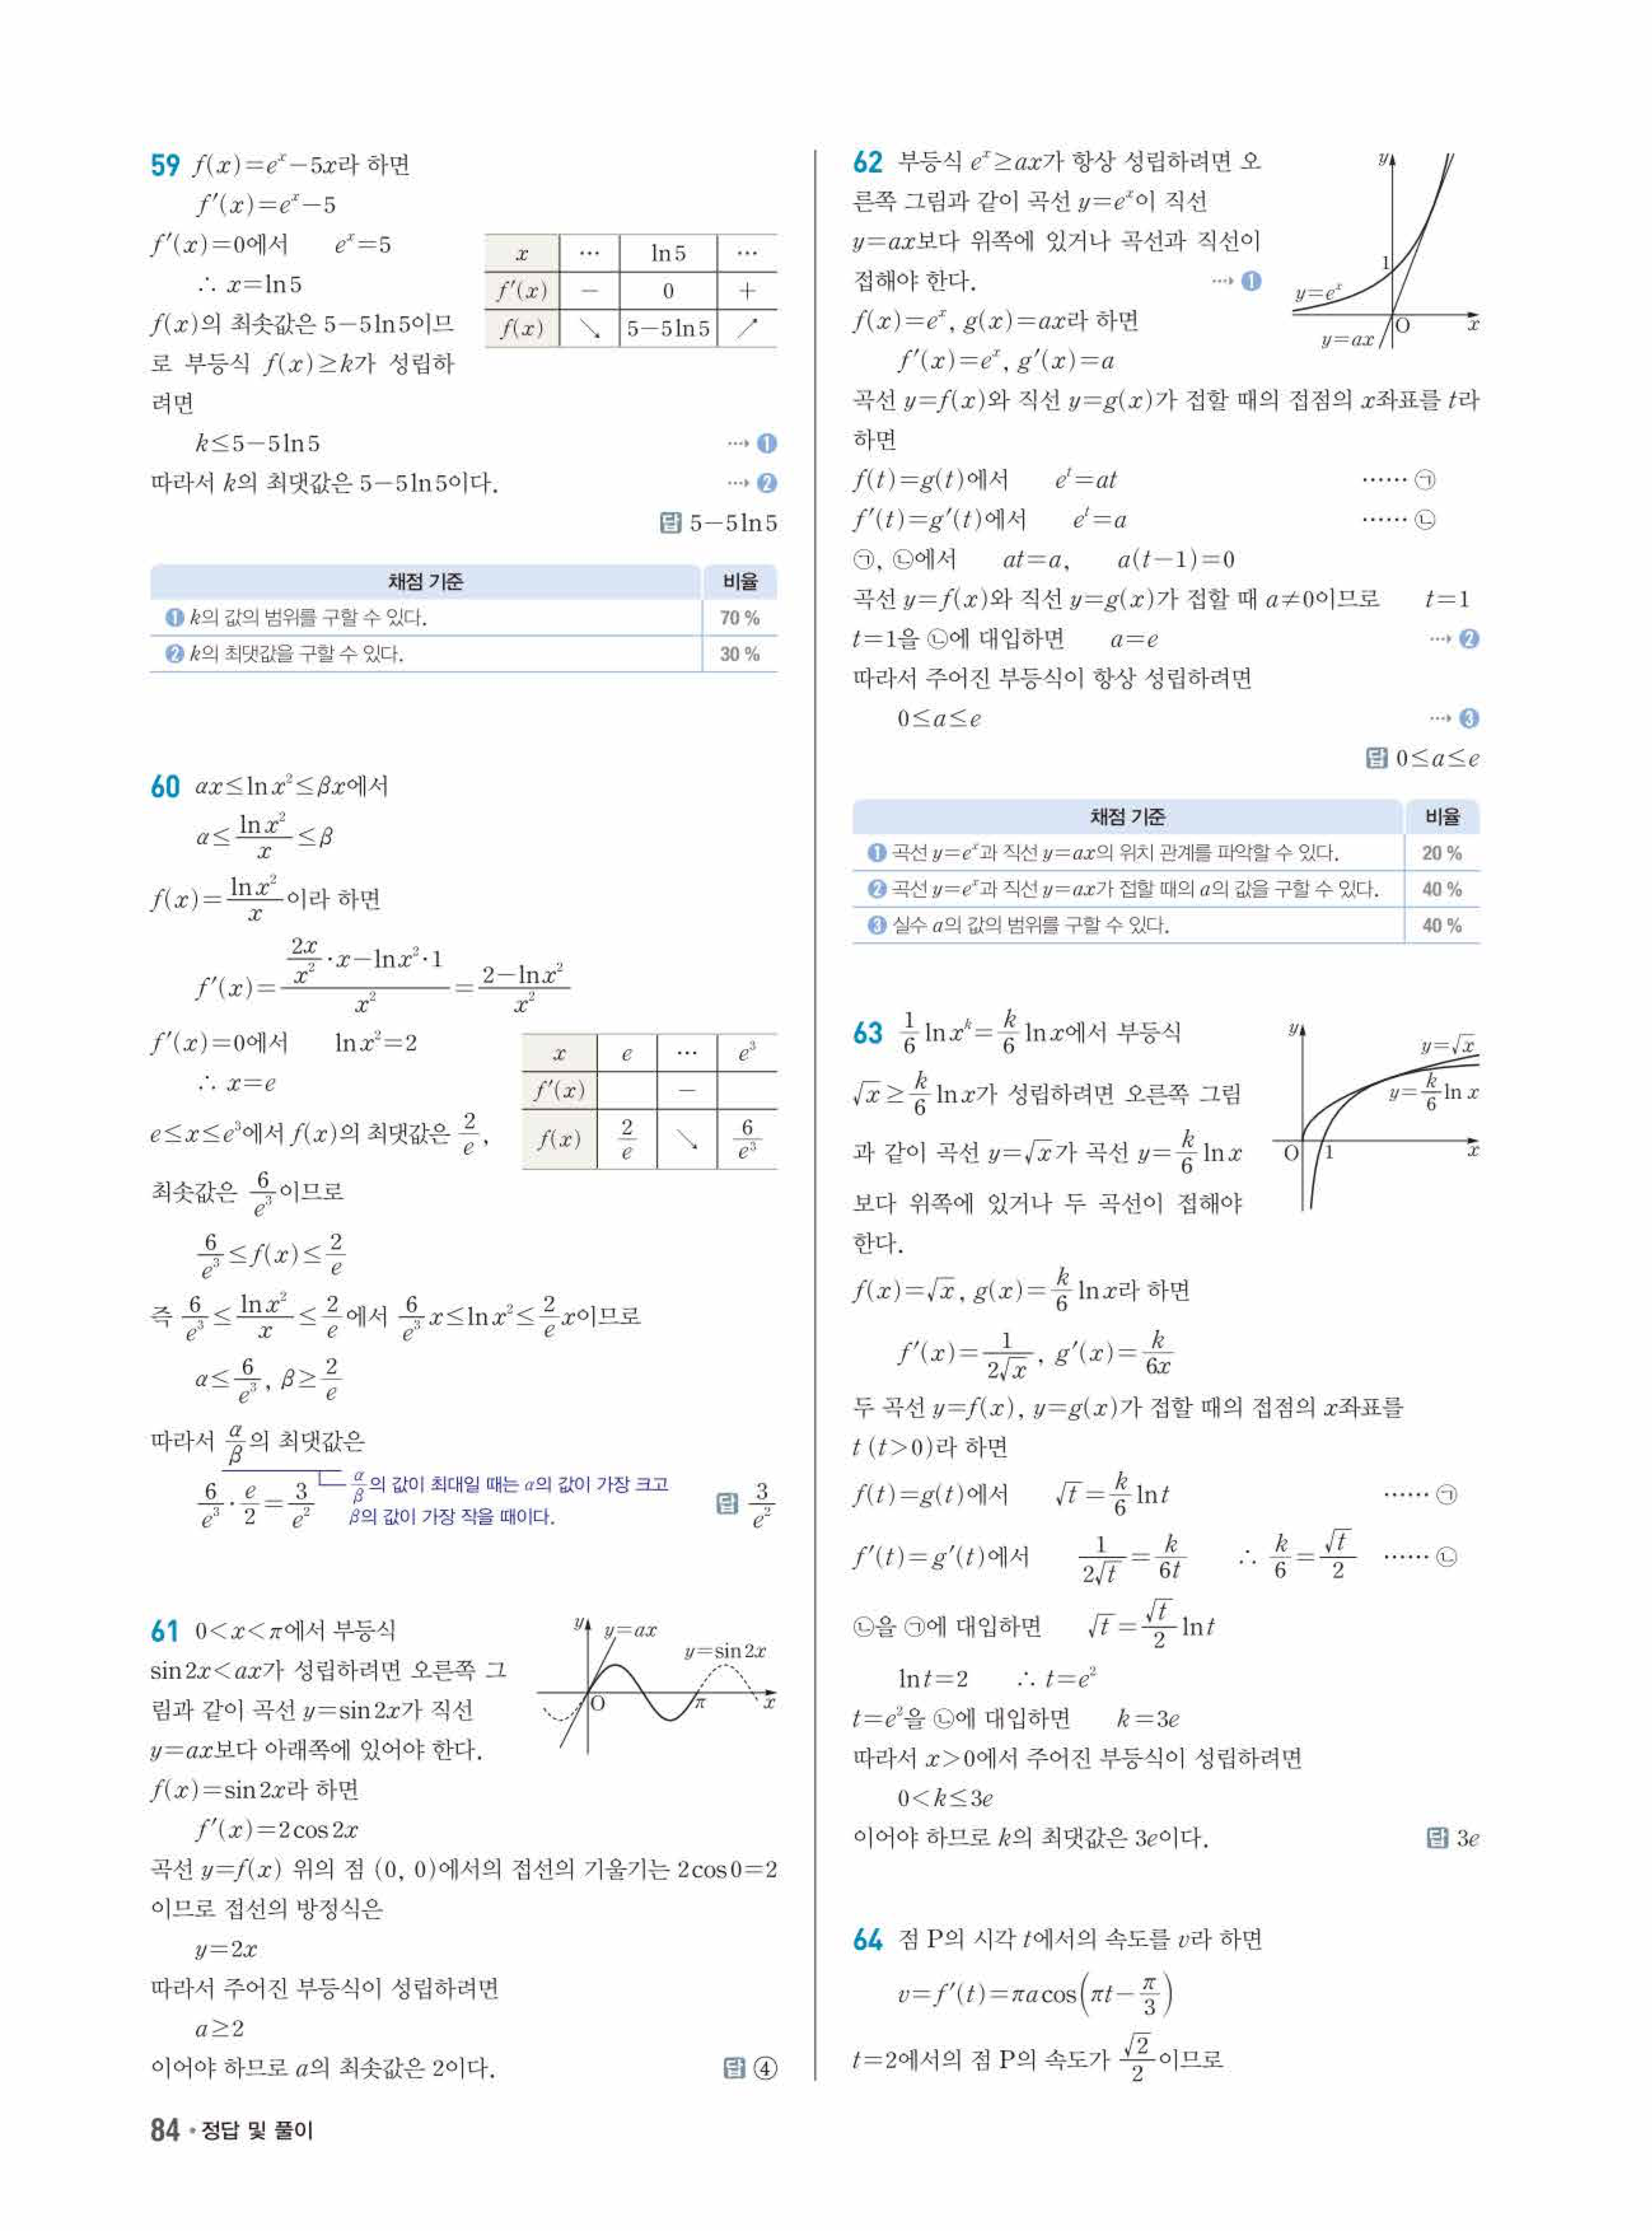 59 f(x)=eˣ-5x라 하면
f′(x)=eˣ-5
f′(x)=0에서 eˣ=5
∴ x=ln5
f(x)의 최솟값은 5-5ln5이므
로 부등식 f(x)≥k가 성립하
려면
x … ln5 …
f′(x) - 0 +
f(x) ↘ 5-5ln5 ↗
k≤5-5ln5 … ❶
따라서 k의 최댓값은 5-5ln5이다. … ❷
답 5-5ln5
채점 기준 비율
❶ k의 값의 범위를 구할 수 있다. 70 %
❷ k의 최댓값을 구할 수 있다. 30 %
60 αx≤lnx²≤βx에서
α≤lnx²/x≤β
f(x)=lnx²/x이라 하면
f′(x)=(2x/x²·x-lnx²·1)/x²=(2-lnx²)/x²
f′(x)=0에서 lnx²=2
∴ x=e
x e … e³
f′(x) -
f(x) 2/e ↘ 6/e³
e≤x≤e³에서 f(x)의 최댓값은 2/e,
최솟값은 6/e³이므로
6/e³≤f(x)≤2/e
즉 6/e³≤lnx²/x≤2/e에서 6/e³x≤lnx²≤2/ex이므로
α≤6/e³, β≥2/e
따라서 α/β의 최댓값은
6/e³·e/2=3/e²
α/β의 값이 최대일 때는 α의 값이 가장 크고
β의 값이 가장 작을 때이다.
답 3/e²
61 0<x<π에서 부등식
sin2x<ax가 성립하려면 오른쪽 그
림과 같이 곡선 y=sin2x가 직선
y=ax보다 아래쪽에 있어야 한다.
y y=ax
y=sin2x
O π x
f(x)=sin2x라 하면
f′(x)=2cos2x
곡선 y=f(x) 위의 점 (0, 0)에서의 접선의 기울기는 2cos0=2
이므로 접선의 방정식은
y=2x
따라서 주어진 부등식이 성립하려면
a≥2
이어야 하므로 a의 최솟값은 2이다. 답 ④
62 부등식 eˣ≥ax가 항상 성립하려면 오
른쪽 그림과 같이 곡선 y=eˣ이 직선
y=ax보다 위쪽에 있거나 곡선과 직선이
접해야 한다. … ❶
y
1
y=eˣ
O x
y=ax
f(x)=eˣ, g(x)=ax라 하면
f′(x)=eˣ, g′(x)=a
곡선 y=f(x)와 직선 y=g(x)가 접할 때의 접점의 x좌표를 t라
하면
f(t)=g(t)에서 eᵗ=at …… ㉠
f′(t)=g′(t)에서 eᵗ=a …… ㉡
㉠, ㉡에서 at=a, a(t-1)=0
곡선 y=f(x)와 직선 y=g(x)가 접할 때 a≠0이므로 t=1
t=1을 ㉡에 대입하면 a=e … ❷
따라서 주어진 부등식이 항상 성립하려면
0≤a≤e … ❸
답 0≤a≤e
채점 기준 비율
❶ 곡선 y=eˣ과 직선 y=ax의 위치 관계를 파악할 수 있다. 20 %
❷ 곡선 y=eˣ과 직선 y=ax가 접할 때의 a의 값을 구할 수 있다. 40 %
❸ 실수 a의 값의 범위를 구할 수 있다. 40 %
63 1/6 lnxᵏ=k/6 lnx에서 부등식
√x≥k/6 lnx가 성립하려면 오른쪽 그림
과 같이 곡선 y=√x가 곡선 y=k/6 lnx
보다 위쪽에 있거나 두 곡선이 접해야
한다.
y
y=√x
y=k/6 ln x
O 1 x
f(x)=√x, g(x)=k/6 lnx라 하면
f′(x)=1/(2√x), g′(x)=k/6x
두 곡선 y=f(x), y=g(x)가 접할 때의 접점의 x좌표를
t (t>0)라 하면
f(t)=g(t)에서 √t=k/6 lnt …… ㉠
f′(t)=g′(t)에서 1/(2√t)=k/6t ∴ k/6=√t/2 …… ㉡
㉡을 ㉠에 대입하면 √t=√t/2 lnt
lnt=2 ∴ t=e²
t=e²을 ㉡에 대입하면 k=3e
따라서 x>0에서 주어진 부등식이 성립하려면
0<k≤3e
이어야 하므로 k의 최댓값은 3e이다. 답 3e
64 점 P의 시각 t에서의 속도를 v라 하면
v=f′(t)=πacos(πt-π/3)
t=2에서의 점 P의 속도가 √2/2이므로
84 • 정답 및 풀이